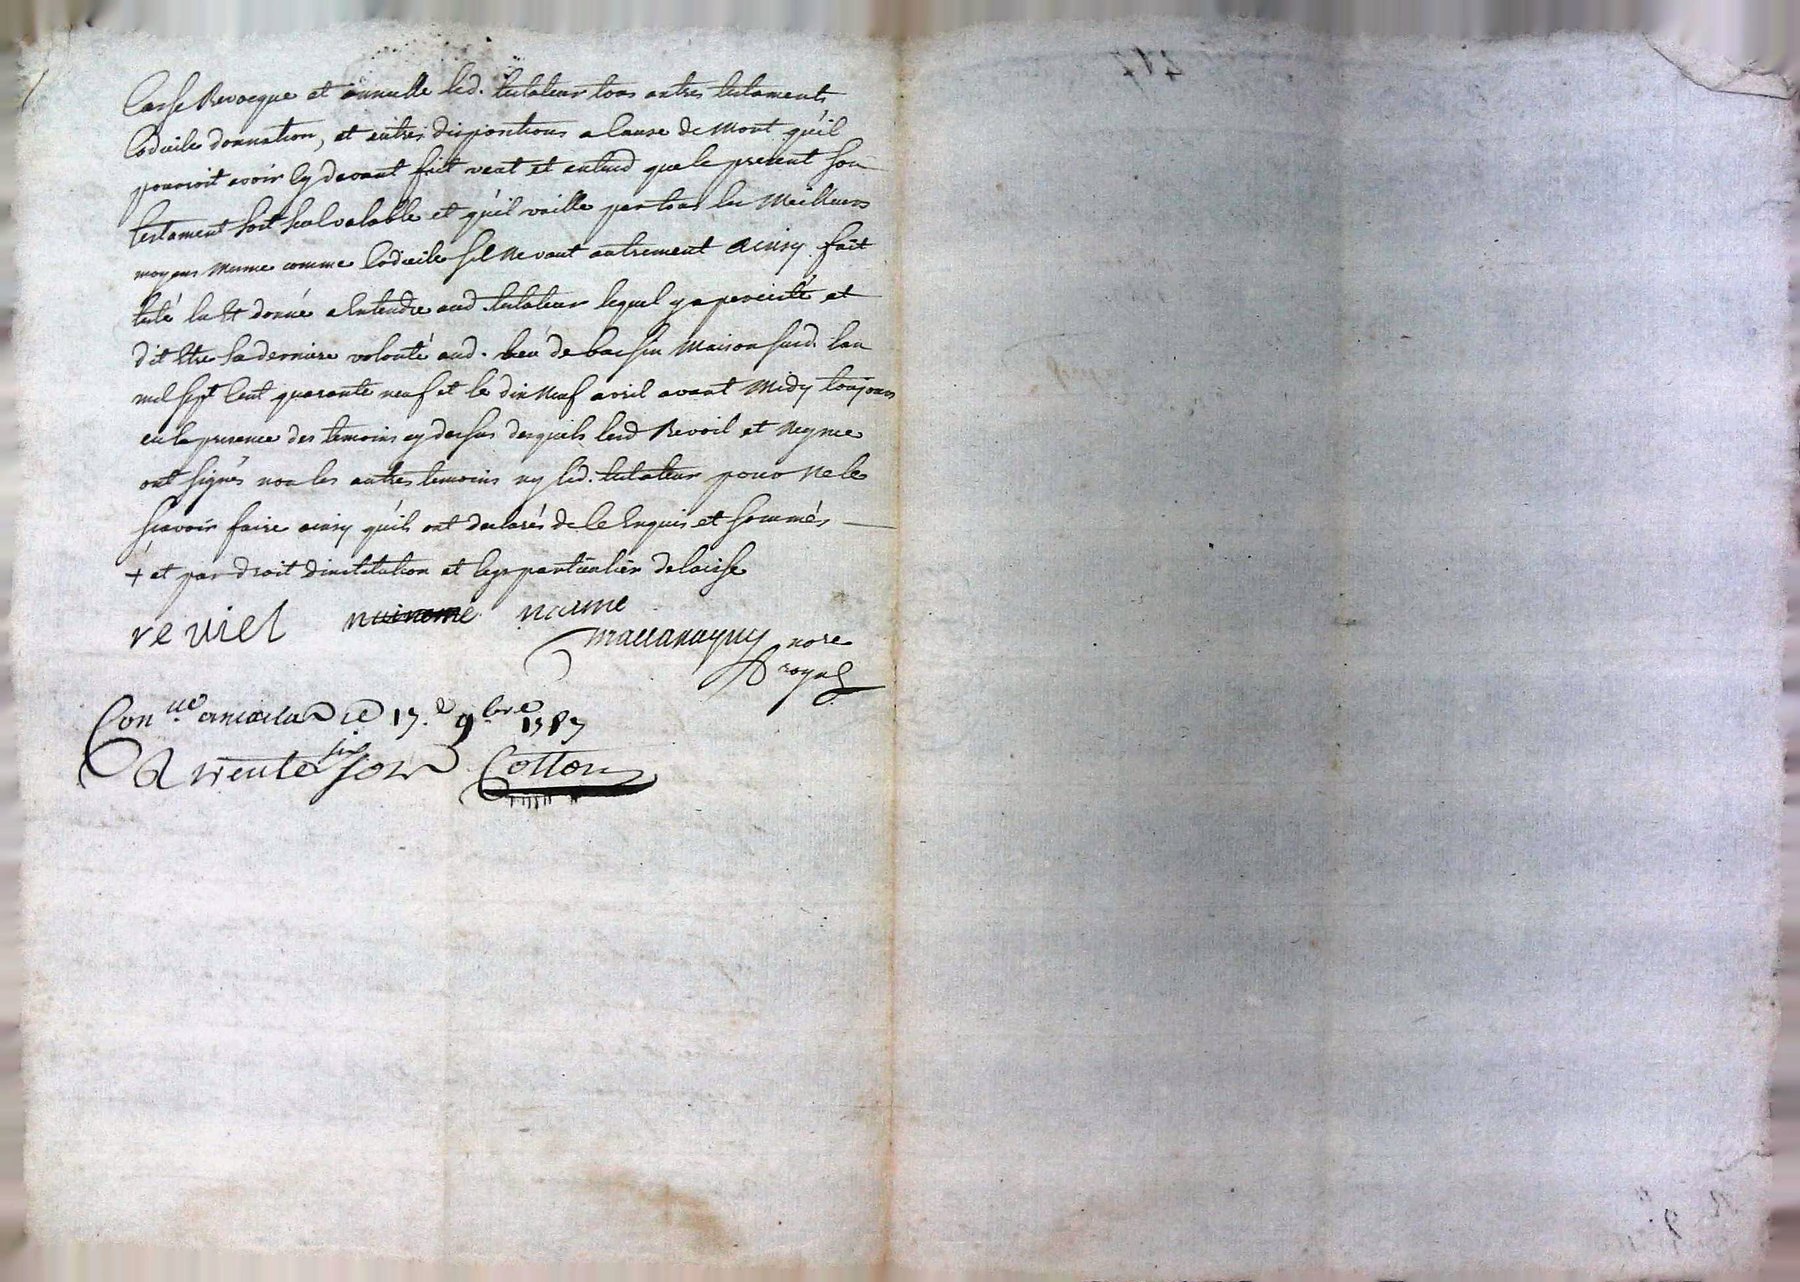 Casse Revocque et annulle led. testateur tous autres testaments
Codicile donnation, et autres dispositions a Cause de Mort qu'il
pouroit avoir Cy devant fait veut et entend que le present son
testament soit seul valable et qu'il vaille par tous les Meilleurs
moyens mesme comme Codicile s'il ne vaut autrement ainsy fait
leu et donné a Entendre aud. testateur lequel y a percisté et
dit Etre sa derniere volonté aud. lieu de maison susd. l'an
mil sept Cent quarante neuf et le dix Neuf avril avant Midy toujours
en la presence des temoins cy dessus desquels lesd Revoil et Neyme
ont signés non les autres temoins ny led. testateur pour Ne le
sçavoir faire ainsy qu'ils ont declarés de Ce Enquis et sommés
+ et par droit d'institution et legs particulier delaisse
reviel naime
nore
royal
Con.lle le 17.e 9bre
a trente six sols Cotton